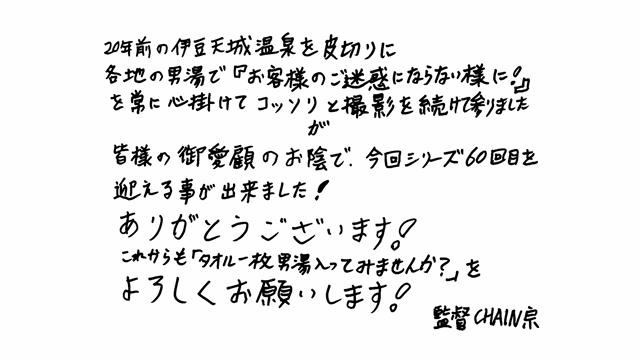 20年前の伊豆天城温泉を皮切りに
各地の男湯で『お客様のご迷惑にならない様に！』
を常に心掛けてコッソリと撮影を続けて参りました
が
皆様の御愛顧のお陰で、今回シリーズ60回目を
迎える事が出来ました！
ありがとうございます！
これからも「タオル一枚男湯入ってみませんか？」を
よろしくお願いします！
監督CHAIN宗